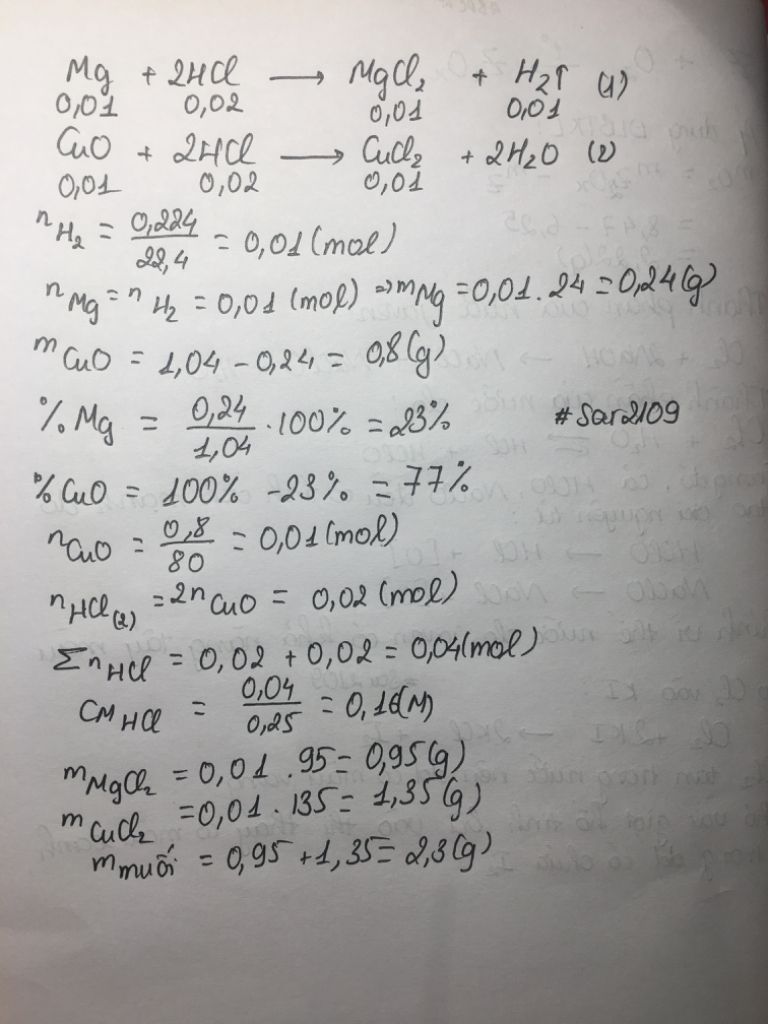 Mg + 2HCl → MgCl₂ + H₂↑ (1)
0,01 0,02 0,01 0,01
CuO + 2HCl → CuCl₂ + 2H₂O (2)
0,01 0,02 0,01
nH₂ = 0,224/22,4 = 0,01 (mol)
nMg = nH₂ = 0,01 (mol) ⇒ mMg = 0,01 . 24 = 0,24 (g)
mCuO = 1,04 - 0,24 = 0,8 (g)
% Mg = 0,24/1,04 . 100% = 23% #Sar2109
% CuO = 100% - 23% = 77%
nCuO = 0,8/80 = 0,01 (mol)
nHCl(2) = 2nCuO = 0,02 (mol)
ΣnHCl = 0,02 + 0,02 = 0,04 (mol)
CM HCl = 0,04/0,25 = 0,16(M)
mMgCl₂ = 0,01 . 95 = 0,95 (g)
mCuCl₂ = 0,01 . 135 = 1,35 (g)
m muối = 0,95 + 1,35 = 2,3 (g)